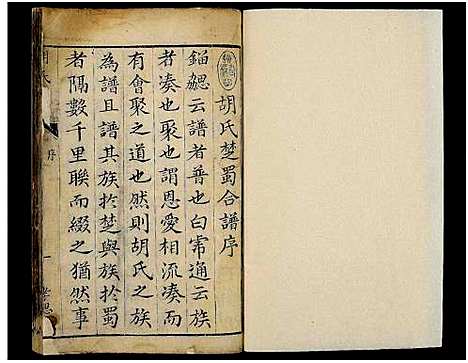 胡氏楚蜀合譜序
錙勰云譜者普也白帠通云族
者湊也聚也謂恩愛相流湊而
有會聚之道也然則胡氏之族
為譜且譜其族於楚與族於蜀
者隔數千里聯而綴之猶然事
序
一